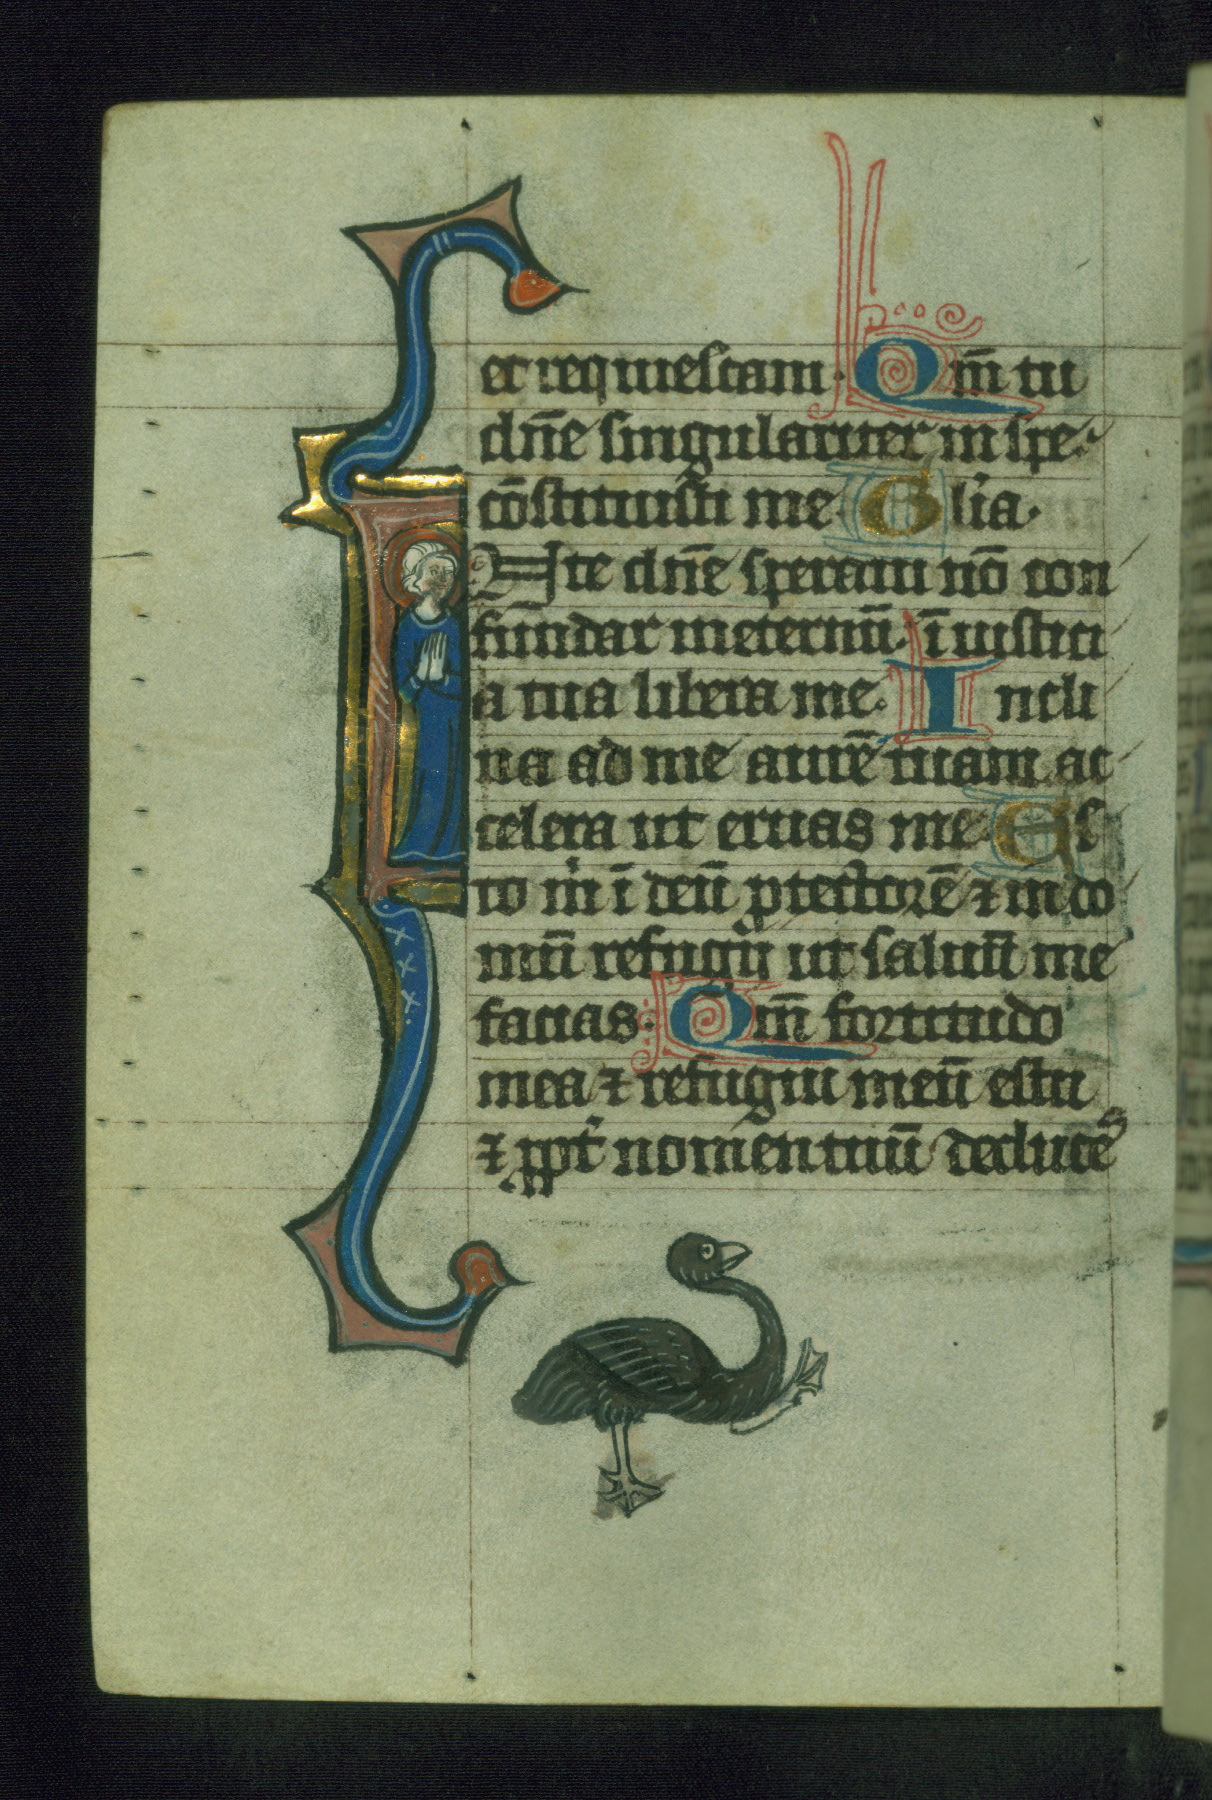 et requiescam. Qm̄ tu
dn̄e singulariter in spe
cōstituisti me. Gl'ia.
In te dn̄e speraui nō con
fundar ineternū. ī iustici
a tua libera me. Incli
na ad me aurē tuam ac
celera ut eruas me. Es
to m̍ i ī deū ꝓtectorē ⁊ in do
mū refugij ut saluū me
facias. Qm̄ fortitudo
mea ⁊ refugiu meū es tu
⁊ ꝓpt' nomen tuū deduces